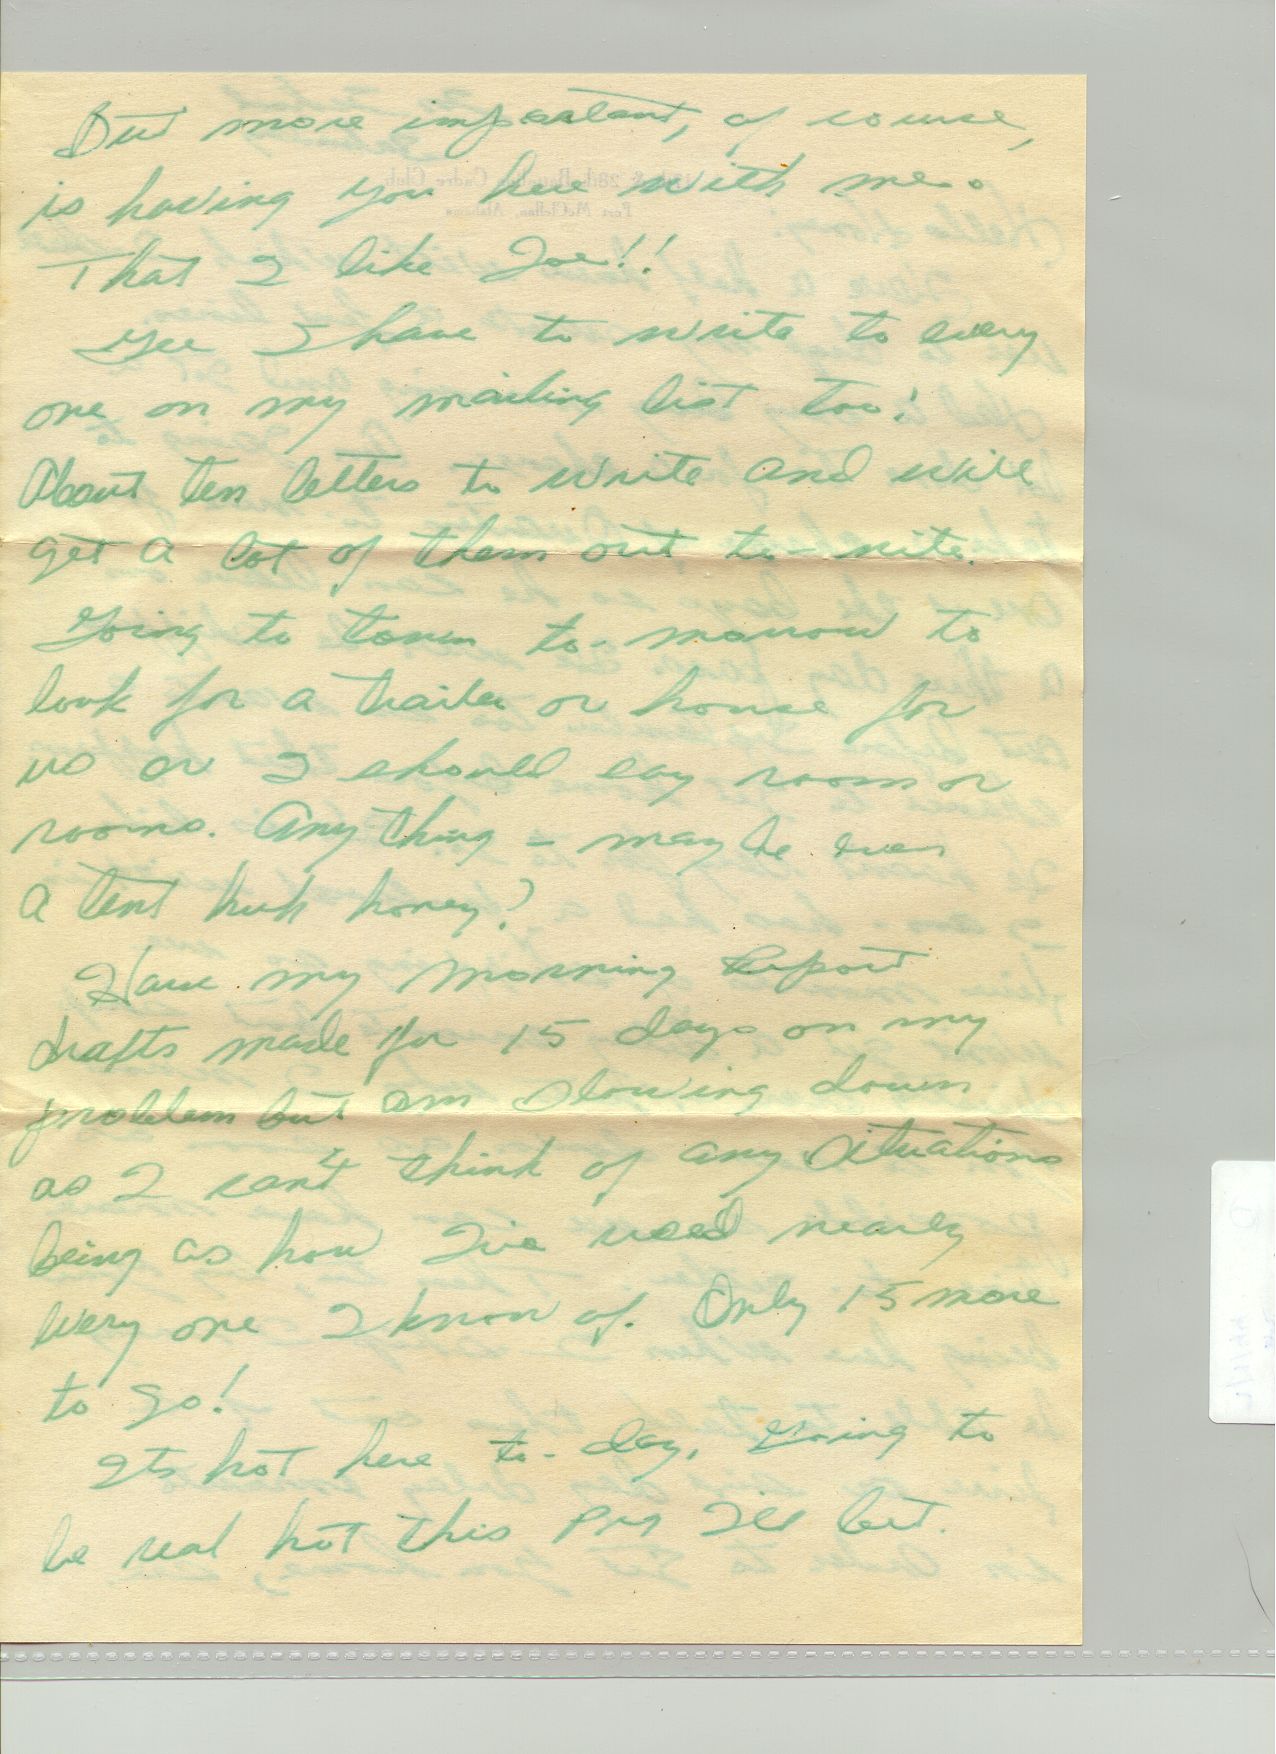 But more important, of course,
is having you here with me.
That I like Joe!!
Gee I have to write to every
one on my mailing list too!
About ten letters to write and will
get a lot of them out to-nite.
Going to town to-morrow to
look for a trailer or house for
us or I should say room or
rooms. Any thing - maybe even
a tent huh honey?
Have my Morning Report
drafts made for 15 days on my
problem but am slowing down
as I can't think of any situations
being as how I've used nearly
every one I know of. Only 15 more
to go!
Its hot here to-day, Going to
be real hot this P.M. I'll bet.